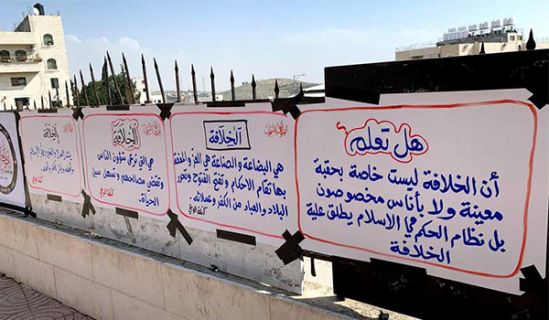 هل تعلم
أن الخلافة ليست خاصة بحقبة
معينة ولا بأناس مخصوصون
بل نظام الحكم في الاسلام يطلق علية
الخلافة
الخلافة
هي البضاعة و الصناعة هي العز و
بها تقام الاحكام و تفتح الفتوح و تحرر
البلاد والعباد من الكفر وعملائه.
كتلة الوعي
الخلافة
هي التي ترعى شؤون الناس
وتقضي مصالحهم و تسهل سبل
الحياة.
كتلة الوعي
الخلافة